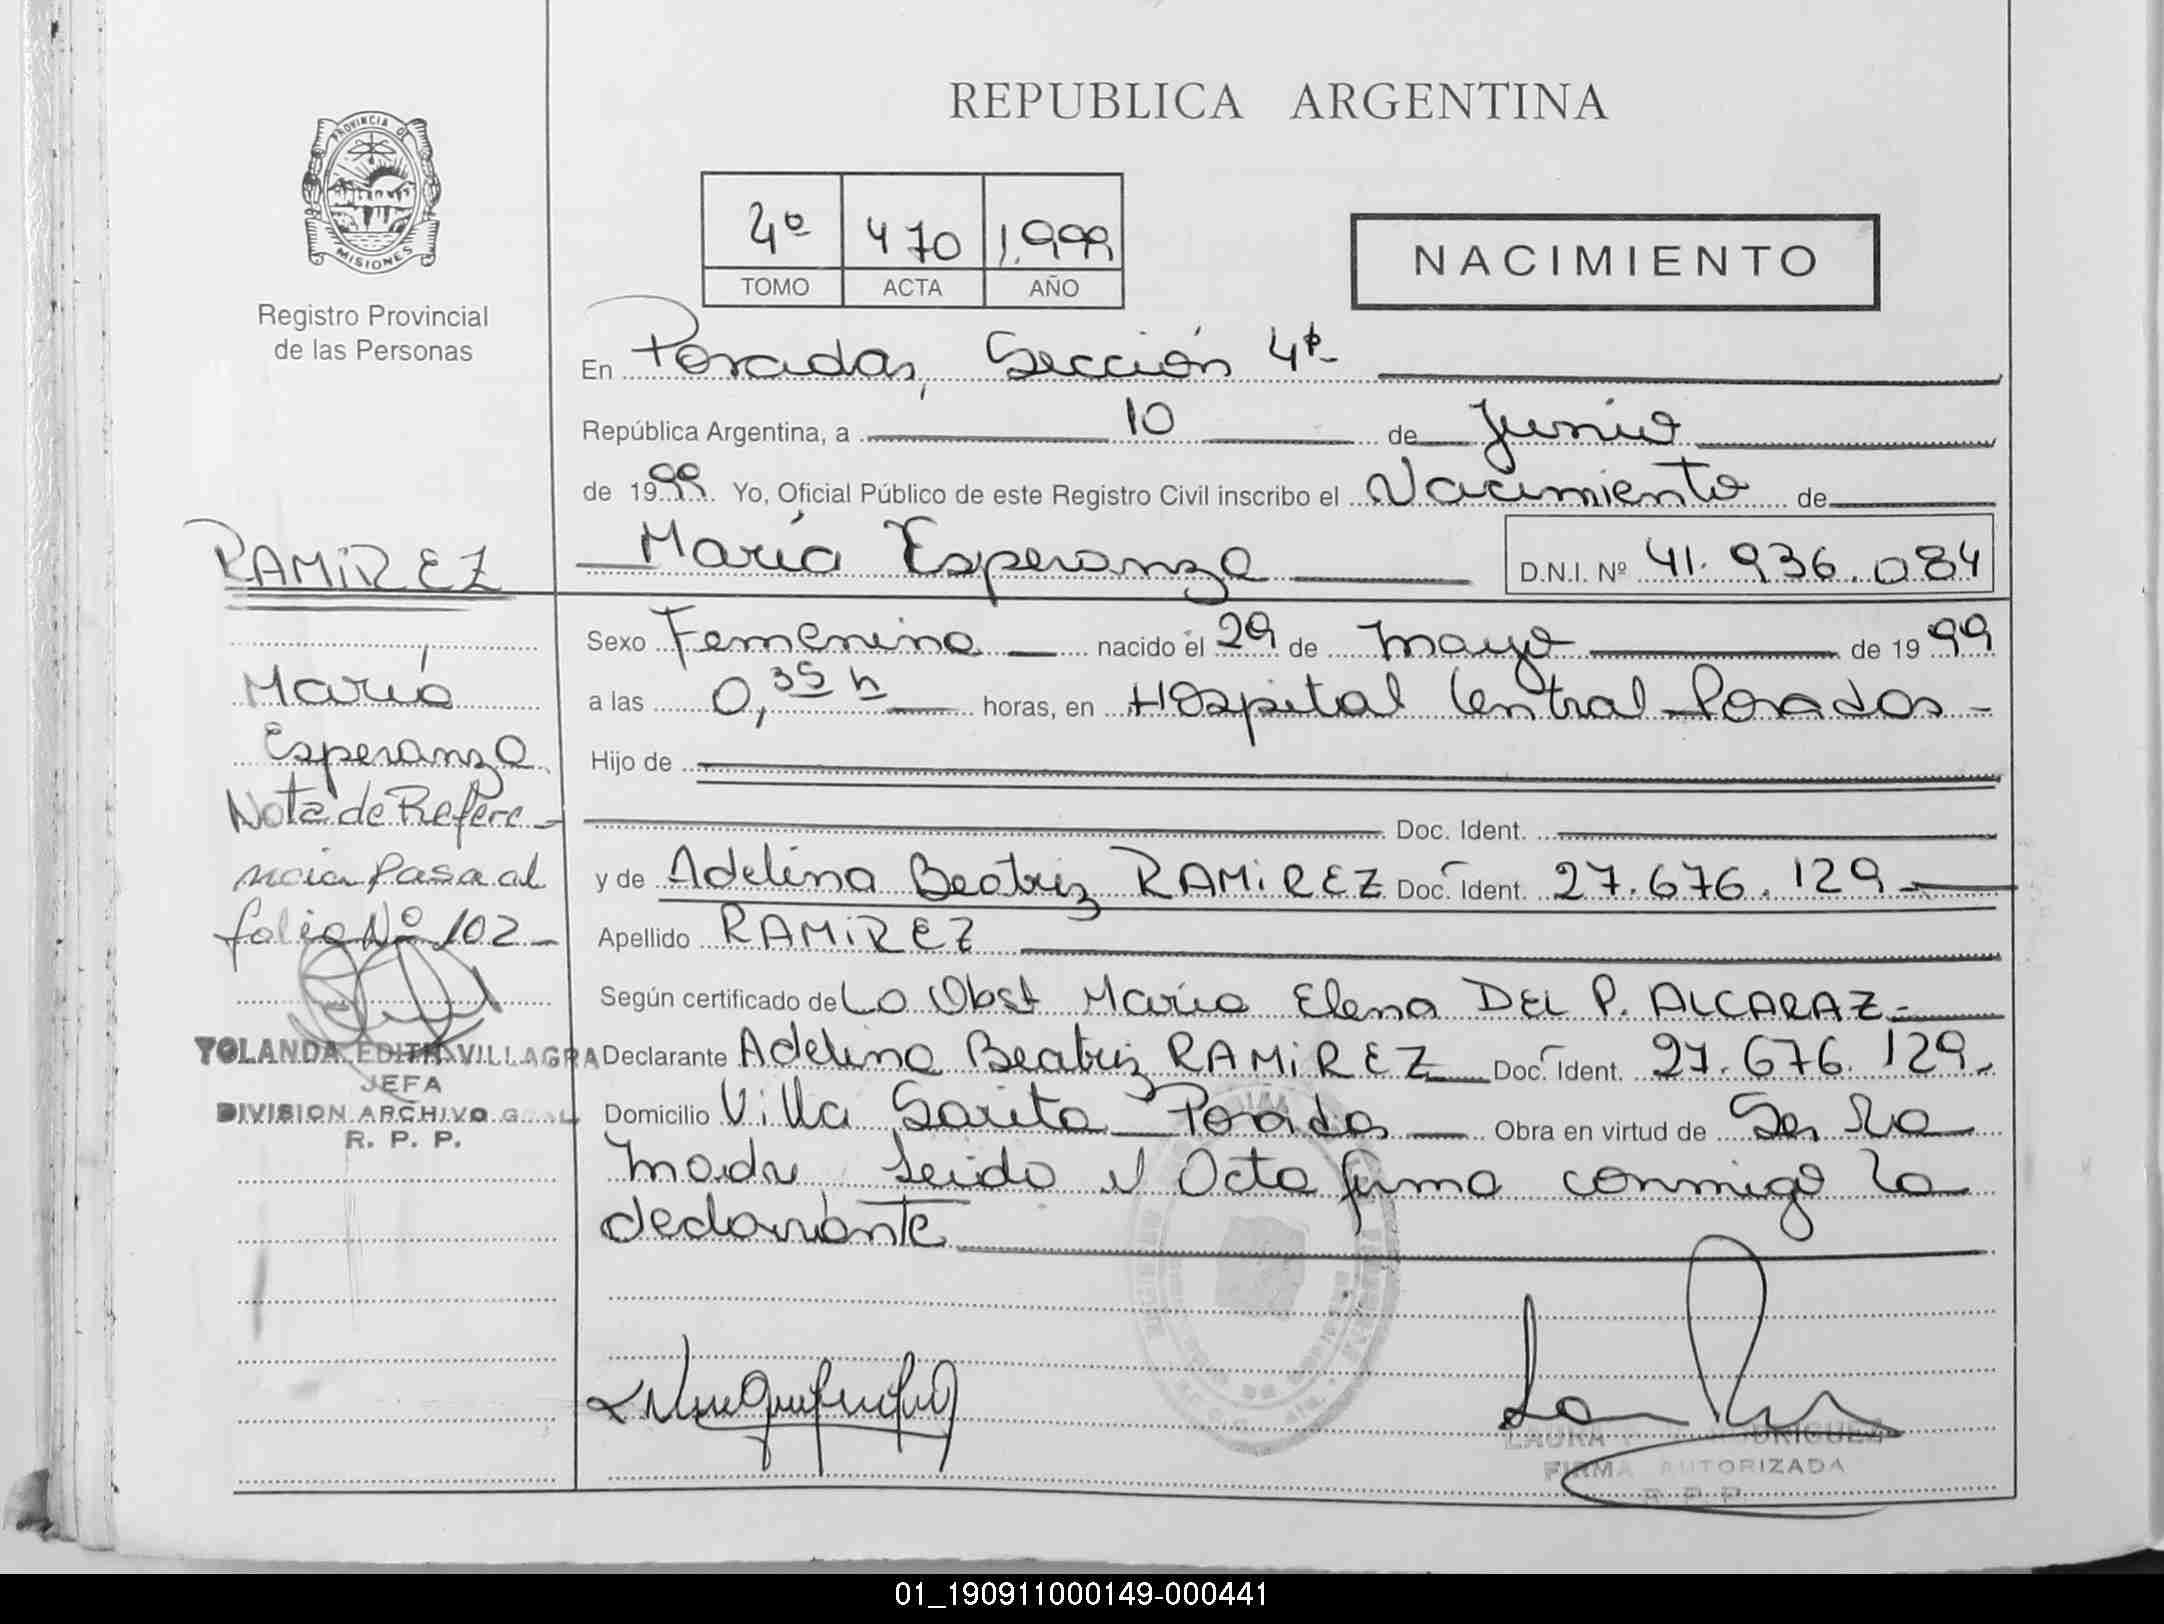 REPUBLICA ARGENTINA
PROVINCIA DE
MISIONES
Registro Provincial
de las Personas
4º 470 1.999
TOMO ACTA AÑO
NACIMIENTO
En Posadas, Sección 4ta
República Argentina, a 10 de Junio
de 1999 Yo, Oficial Público de este Registro Civil inscribo el Nacimiento de
María Esperanza D.N.I. Nº 41.936.084
Sexo Femenino nacido el 29 de mayo de 1999
a las 0,35 h horas, en Hospital Central Posadas
Hijo de
Doc. Ident.
y de Adelina Beatriz RAMIREZ Doc. Ident. 27.676.129
Apellido RAMIREZ
Según certificado de La Obst María Elena DEL P. ALCARAZ
Declarante Adelina Beatriz RAMIREZ Doc. Ident. 27.676.129
Domicilio Villa Sarita Posadas Obra en virtud de Ser la
madre, leido el Acta firma conmigo la
declarante
RAMIREZ
María
Esperanza
Nota de Refere-
ncia Pasa al
folio Nº 102
YOLANDA EDITH VILLAGRA
JEFA
DIVISION ARCHIVO
R. P. P.
LAURA RODRIGUEZ
FIRMA AUTORIZADA
R. P. P.
01_190911000149-000441